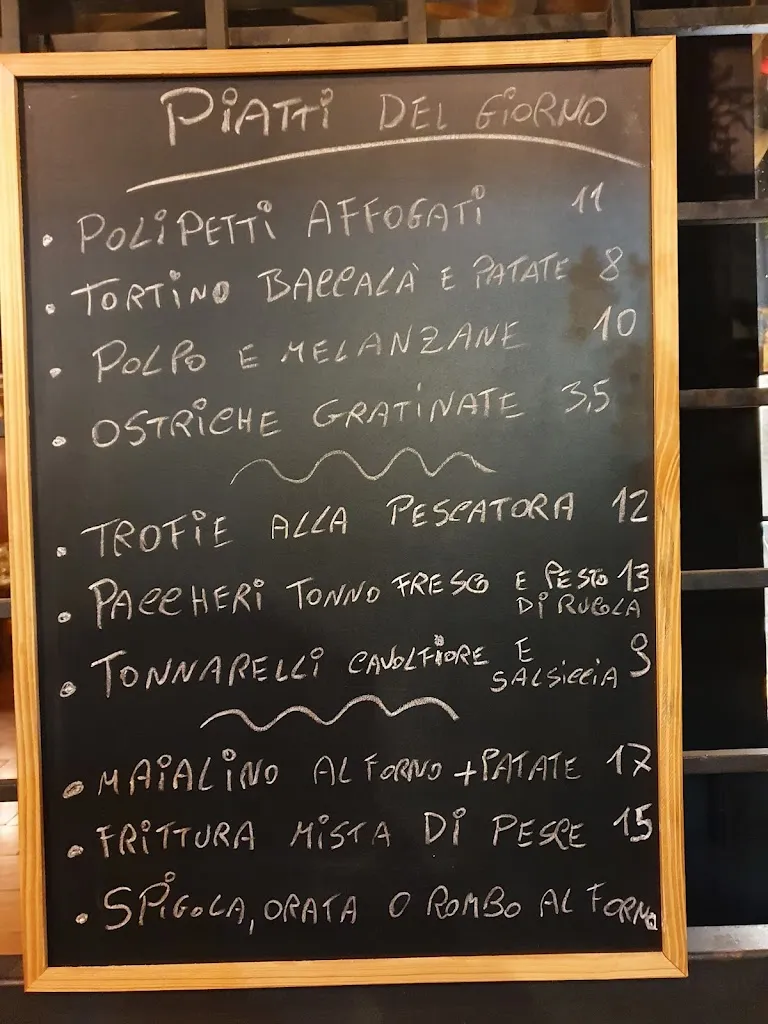 PIATTI DEL GIORNO
• POLIPETTI AFFOGATI 11
• TORTINO BACCALÀ E PATATE 8
• POLPO E MELANZANE 10
• OSTRICHE GRATINATE 3,5
• TROFIE ALLA PESCATORA 12
• PACCHERI TONNO FRESCO E PESTO 13
DI RUCOLA
• TONNARELLI CAVOLFIORE E 9
SALSICCIA
• MAIALINO AL FORNO + PATATE 17
• FRITTURA MISTA DI PESCE 15
• SPIGOLA, ORATA O ROMBO AL FORNO